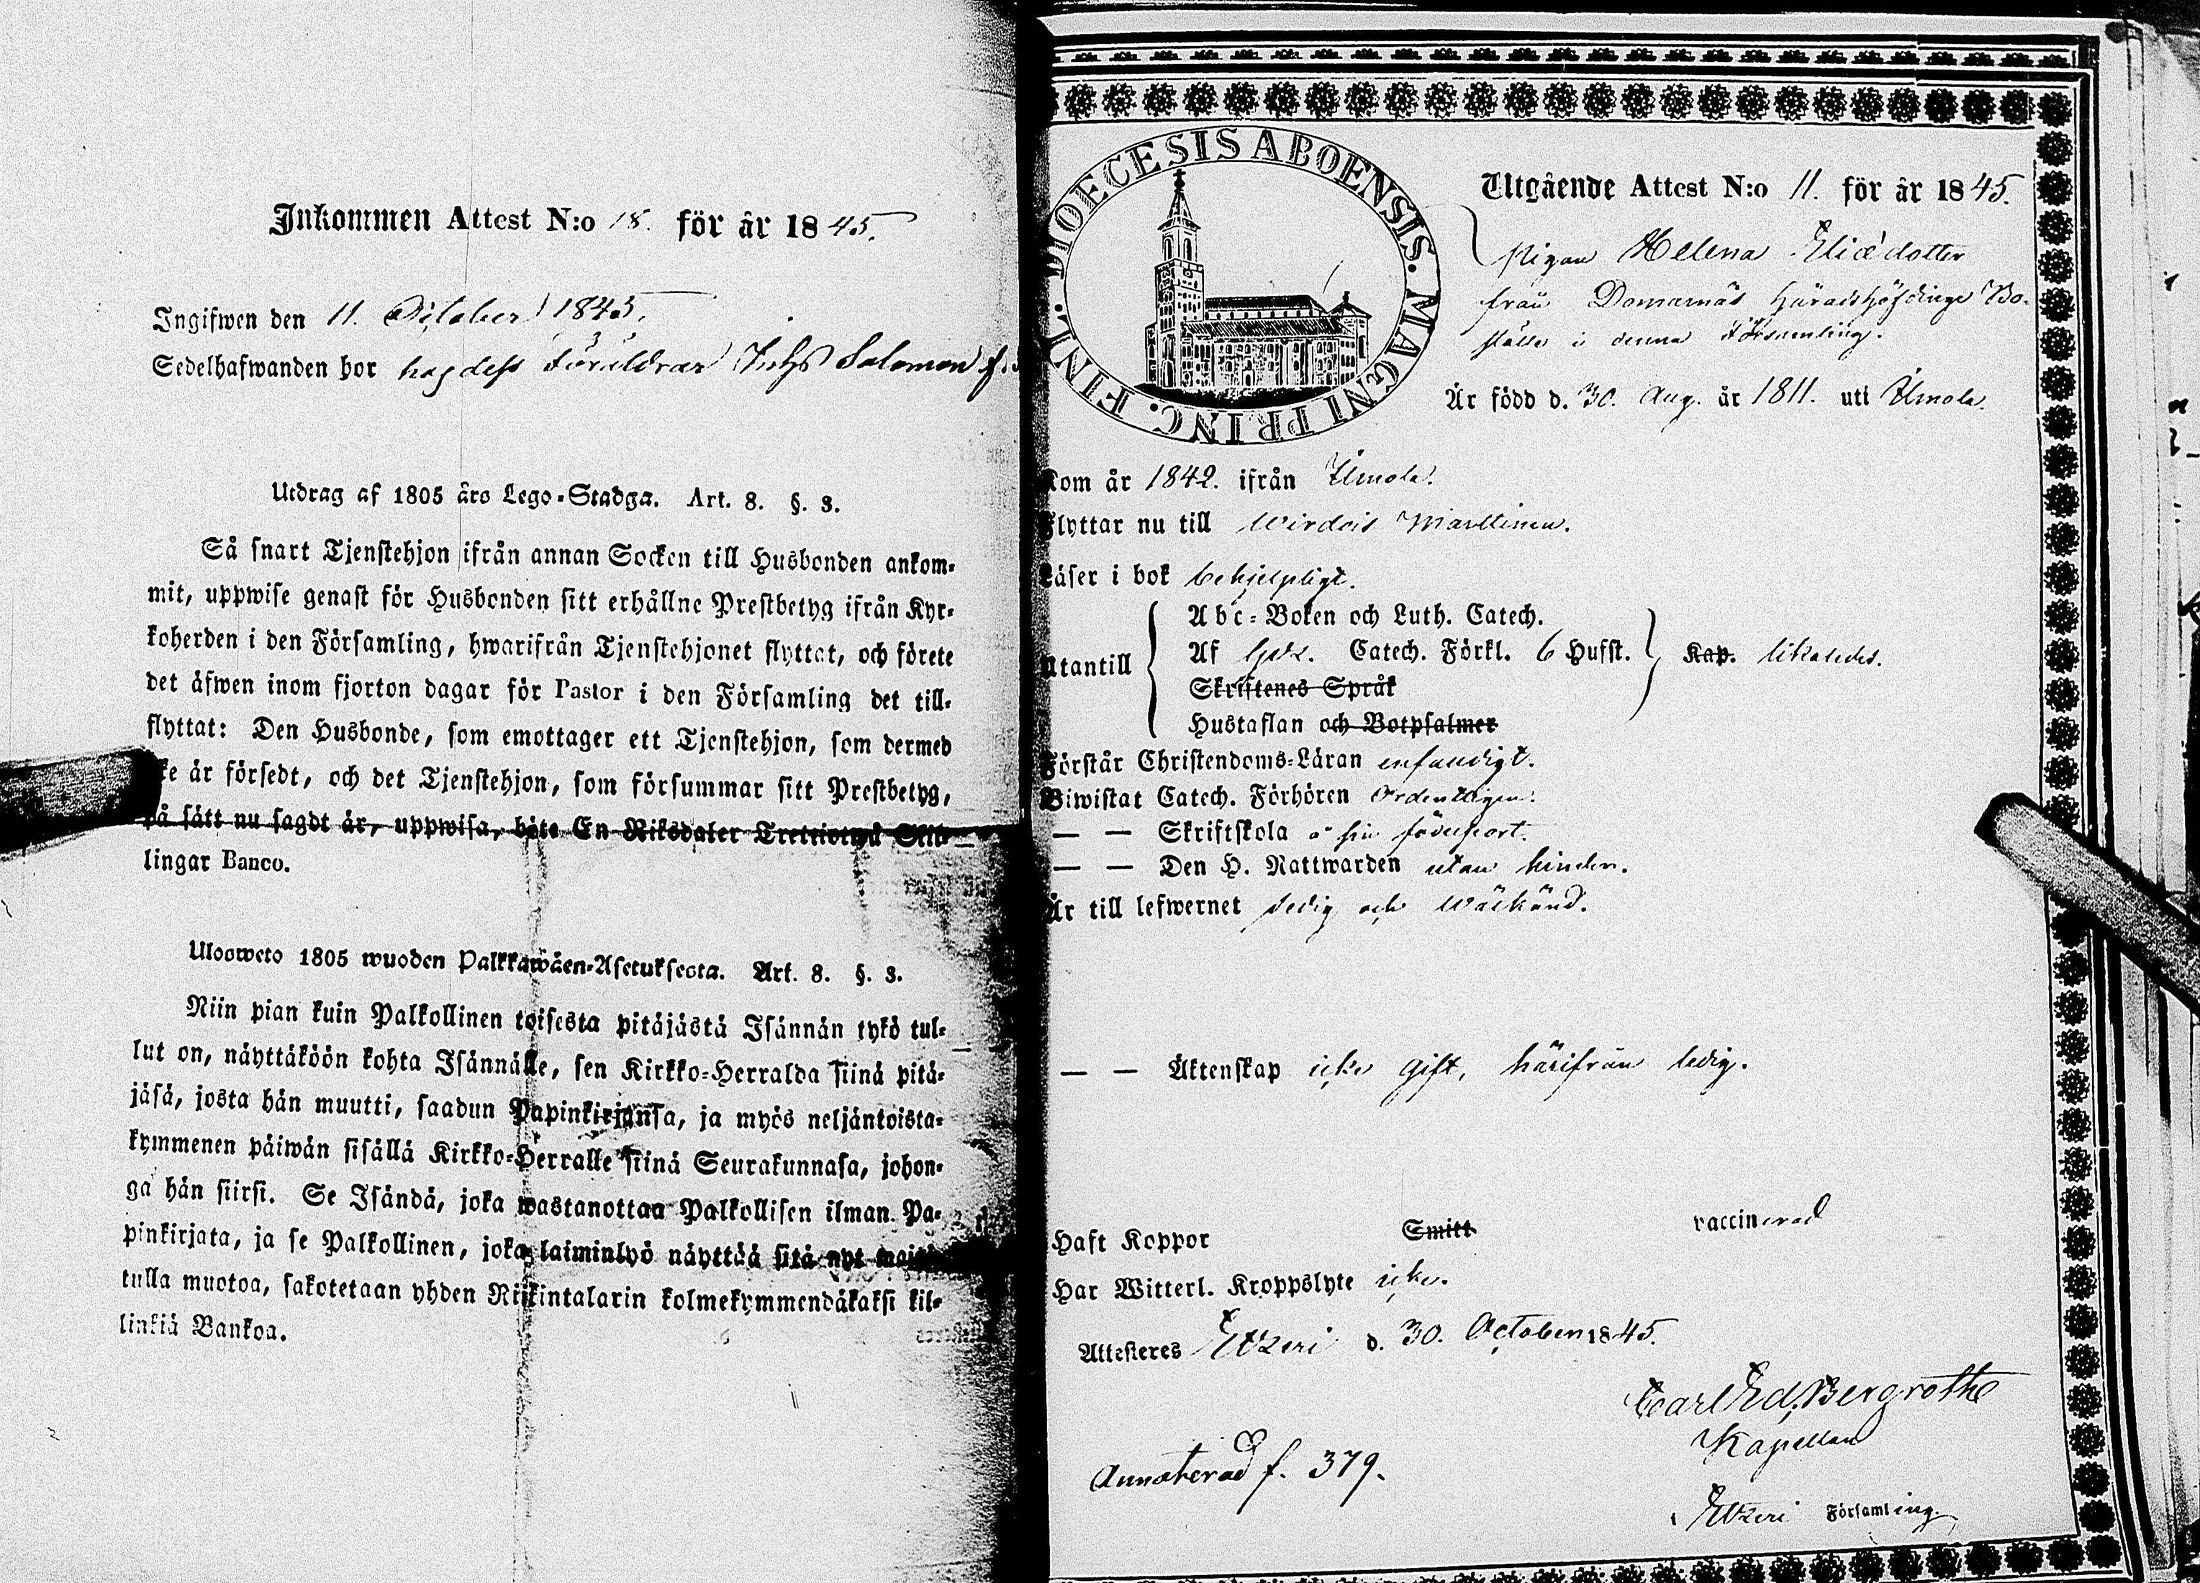 Inkommen Attest N:o 18. för år 1845.
Ingifwen den 11. October 1845.
Sedelhafwanden bor hos dess Föräldrar Salomon
Utdrag af 1805 års Lego-Stadga. Art. 8. §. 3.
Så snart Tjenstehjon ifrån annan Socken till Husbonden ankom-
mit, uppwise genast för Husbonden sitt erhållne Prestbetyg ifrån Kyr-
koherden i den Församling, hwarifrån Tjenstehjonet flyttat, och förete
det äfwen inom fjorton dagar för Pastor i den Församling det till-
flyttat: Den Husbonde, som emottager ett Tjenstehjon, som dermed
är försedt, och det Tjenstehjon, som försummar sitt Prestbetyg,
på sätt nu sagdt är, uppwisa, böte En Riksdaler Trettiotwå Skil-
lingar Banco.
Ulosweto 1805 wuoden Palkkawäen-Asetuksesta. Art. 8. §. 3.
Niin pian kuin Palkollinen toisesta pitäjästä Isännän tykö tul-
lut on, näyttäköön kohta Isännälle, sen Kirkko-Herralda siinä pitä-
jäsä, josta hän muutti, saadun Papinkirjansa, ja myös neljäntoista-
kymmenen päiwän sisällä Kirkko-Herralle siinä Seurakunnasa, johon-
ga hän siirsi. Se Isändä, joka wastanottaa Palkollisen ilman Pa-
pinkirjata, ja se Palkollinen, joka laiminlyö näyttää sitä nyt
tulla muotoa, sakotetaan yhden Riikintalarin kolmekymmendäkaksi kil-
linkiä Bankoa.
DIOECESIS ABOENSIS. MAGNI PRINC. FINL.
Utgående Attest N:o 11. för år 1845.
Pigan Helena Eliædotter
från Domarnäs Häradshöfdinge Bo-
ställe i denna Församling.
Är född d. 30. Aug. år 1811. uti Ilmola.
Kom år 1842. ifrån Ilmola.
Flyttar nu till Wirdois
Läser i bok behjelpligt.
Utantill
Abc-Boken och Luth. Catech.
Af Catech. Förkl. 6 Hufst.
Skriftenes Språk
Hustaflan och Botpsalmer
Kap. likaledes.
Förstår Christendoms-Läran enfaldigt.
Biwistat Catech. Förhören Ordentligen.
— — Skriftskola å sin födelseort.
— — Den H. Nattwarden utan hinder.
Är till lefwernet ledig och wälkänd.
— — Äktenskap icke gift, härifrån ledig.
Haft Koppor Smitt vaccinerad
Har Witterl. Kroppslyte icke.
Attesteres Etzeri d. 30. October 1845.
Carl Ed. Bergroth
Kapellan
Etzeri Församling
Annoterad f. 379.